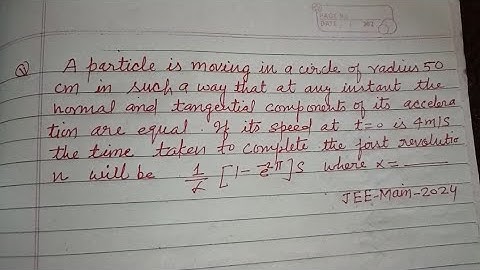 PAGE NO.
DATE
Q A particle is moving in a circle of radius 50
cm in such a way that at any instant the
normal and tangential components of its accelera
tion are equal. If its speed at t=0 is 4m/s
the time taken to complete the first revolutio
n will be 1/α [1-e^-2π]s where α=
JEE-Main-2024